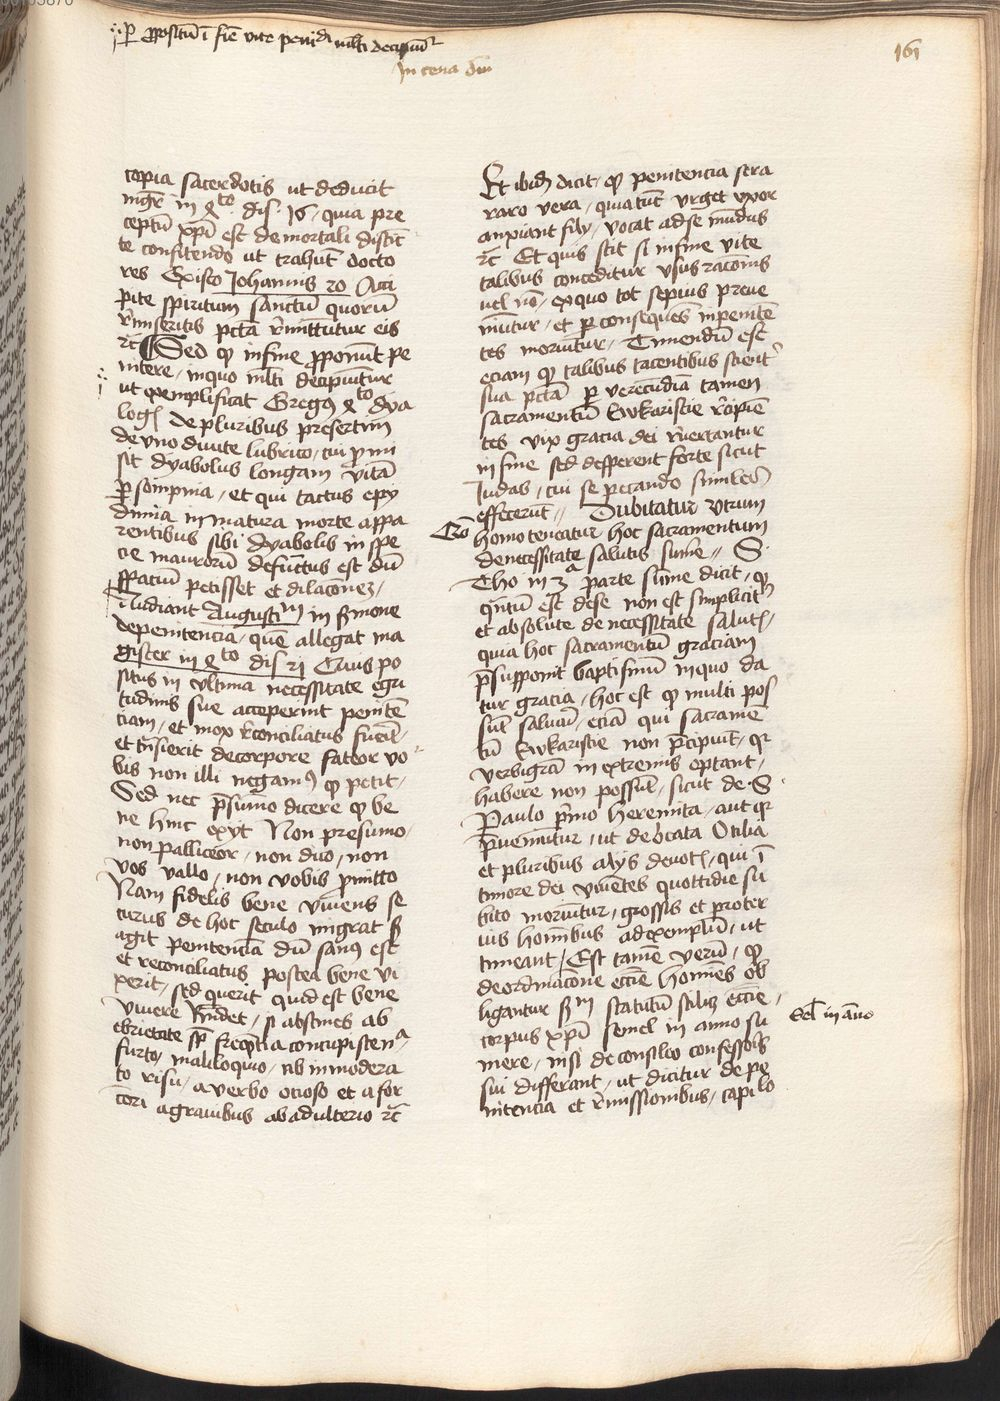 ·:· ꝑ ꝓpositũ ĩ fiẽ vite peniᵈⁱ mlti decipiũᵗ
In cena dni
161
copia sacerdotis ut deducit
mgr̃ in 4ᵗᵒ dis. 16 / quia pre
ceptũ xpi est de mortali distict
te confitendo ut trahũt docto
res Ex isto Johannis 20 Acci
pite spiritum sanctũ quorũ
r̃miseritis pctã r̃mittutur eis
rc̃ Sed qz in fine ꝓponũt pe
nitere / in quo mlti decipiũtur
ut exemplificat Gregꝰ 4ᵗᵒ dya
log̃ de pluribus presertim
de vno diuite lubrico / cui p̃mi
sit dyabolus longam vitã
ꝑ sompnia / et qui tactus epy
dimia inmatura morte appa
rentibus sibi dyabolis in spe
cie maurorũ defũctus est dũ
spaciũ petisset et dilacõnez /
Audiant Augustiᵐ in s̃mone
de penitencia / quẽ allegat ma
gister in 4ᵗᵒ dis 21 Cuius po
situs in vltima necessitate egri
tudinis sue acceperint penitẽ
ciam / et mox r̃conciliatus fueri̅t /
et tñsierit de corpore fateor vo
bis non illi negamꝰ qz petit /
Sed nec p̃sumo dicere qz be
ne hinc exyt Non presumo /
non polliceor / non dico / non
vos vallo / non vobis p̃mitto
Nam fidelis bene viuens se
curus de hoc seculo migrat s̃
agit penitenciã dũ sanꝰ est
et reconciliatus postea bene vi
xerit / sed querit quid est bene
viuere R̃ndet / si abstines ab
ebrietate sp̃ freq̃tia concupiscenᵃ
furto / maliloquio / ab inmodera
to risu / a verbo ocioso et a for
ciori a grauibus ab adulterio rc̃
Et ibid̃ dicit / qz penitencia sera
raro vera / quia tũc vrget vxor
anxiant fily / vocat ad se mũdus
rc̃ Et quis scit si in fine vite
talibus conceditur vsus racõnis
uel nõ / ex quo tot sepius preue
niũtur / et ꝑ consequẽs inpenitẽ
tes moriũtur / Timendũ est
eciam qz talibus tacentibus scient̾
sua pctã ꝑ verecũdiã tamen
sacramentũ Ewkaristie r̃cipiẽ
tes vix gracia dei r̃uertantur
in fine sed desperent forte sicut
Judas / cui se peccando similes
effecerũt // Dubitatur Vtrum
homo teneatur hoc sacramentum
de necessitate salutis sume̅ // S.
Tho in 3ᵃ parte sũme dicit / qz
q̃ntũ est de se non est simplicit̾
et absolute de necessitate saluti̅s /
quia hoc sacramentũ graciam
p̃supponit baptismũ in quo da
tur gracia / hoc est qz multi pos
sũt saluari / eciã qui sacramẽ
tũ Ewkaristie non p̃cipiũt / qz
verbigrã in extremis optant /
habere non possũt / sicut de. S
Paulo p̃mo heremita / aut qz
p̃ueniũtur / ut de beata Otilia
et pluribus alijs deuoti̅s / qui ĩ
timore dei viuentes quottidie su
bito moriũtur / grossis et proter
uis hominibus ad exemplũ / ut
timeant / Est tamẽ verũ / qz
de ordinacõne ecciẽ homines ob
ligantur s̃m statutũ stiliz ecciẽ /
corpus xpi semel in anno su
mere / nisi de consilio confessoris
sui differant / ut dicitur de pe
nitencia et r̃missionibus / capilo
Qõ
Sel̃ in ãno